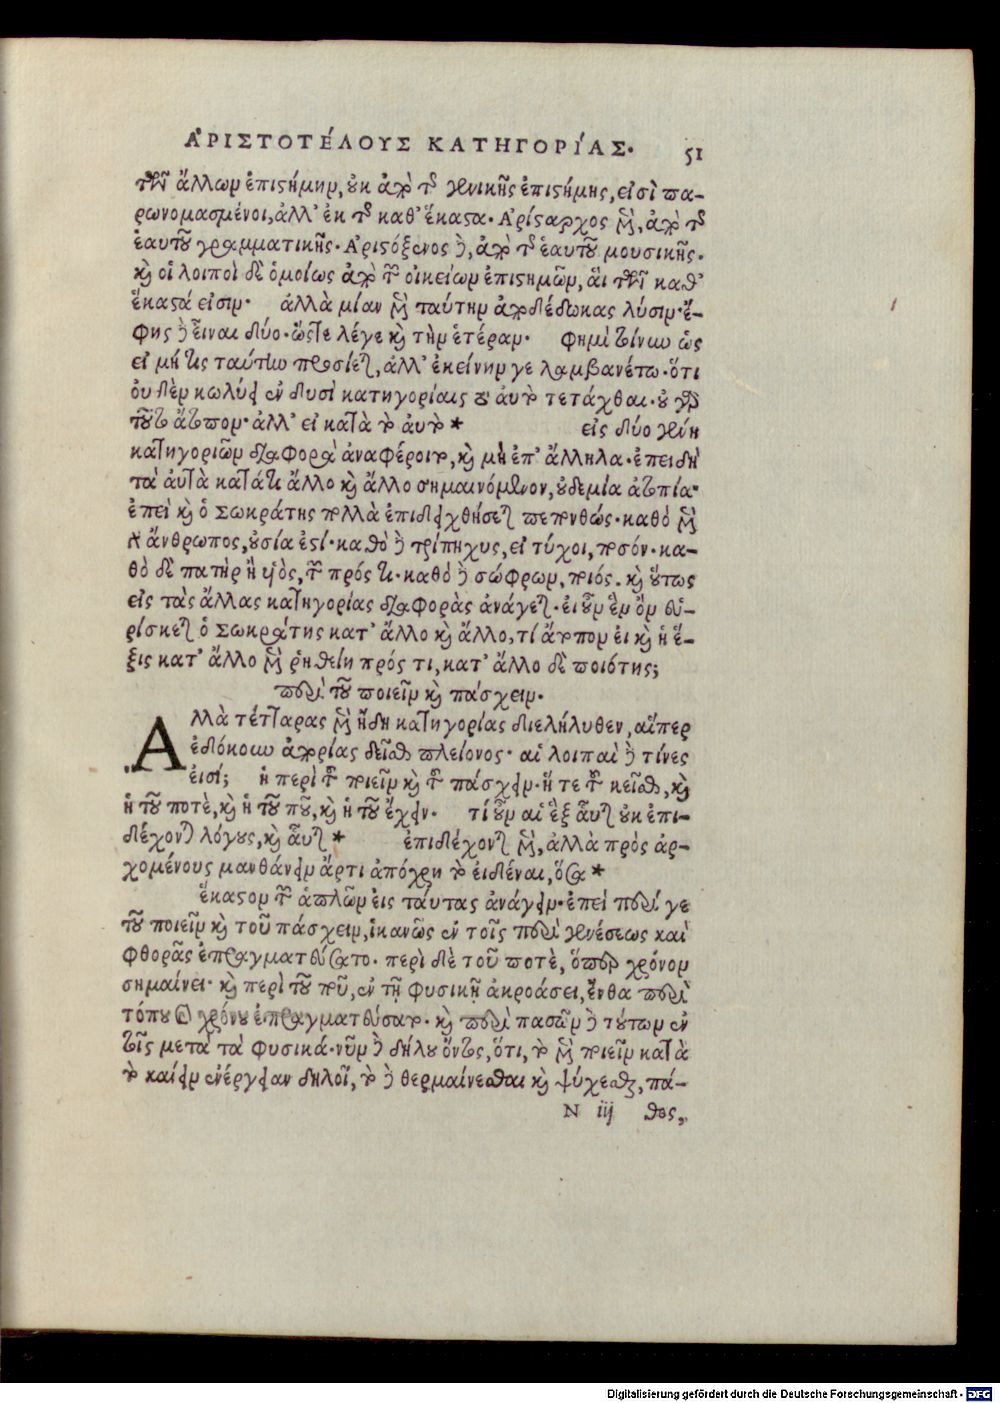 ἈΡΙΣΤΟΤΈΛΟΥΣ ΚΑΤΗΓΟΡΊΑΣ. 51
τῶν ἄλλων ἐπιστήμην, οὐκ ἀπὸ τῆς γενικῆς ἐπιστήμης, εἰσὶ πα-
ρωνομασμένοι, ἀλλ' ἐκ τῆς καθ' ἕκαστα. Ἀρίσταρχος μὲν, ἀπὸ τῆς
ἑαυτοῦ γραμματικῆς. Ἀριστόξενος δὲ, ἀπὸ τῆς ἑαυτοῦ μουσικῆς.
καὶ οἱ λοιποὶ δὲ ὁμοίως ἀπὸ τῶν οἰκείων ἐπιστημῶν, αἳ τῶν καθ'
ἕκαστά εἰσιν. ἀλλὰ μίαν μὲν ταύτην ἀποδέδωκας λύσιν. ἔ-
φης δὲ εἶναι δύο. ὥστε λέγε καὶ τὴν ἑτέραν. φημὶ τοίνυν ὡς
εἰ μή τις ταύτην προσίεται, ἀλλ' ἐκείνην γε λαμβανέτω. ὅτι
οὐδὲν κωλύει ἐν δυσὶ κατηγορίαις τὸ αὐτὸ τετάχθαι. οὐ γὰρ
τοῦτο ἄτοπον. ἀλλ' εἰ κατὰ τὸ αὐτὸ * εἰς δύο γένη
κατηγοριῶν διαφορὰ ἀναφέροιτο, καὶ μὴ ἐπ' ἄλληλα. ἐπειδὴ
τὰ αὐτὰ κατά τι ἄλλο καὶ ἄλλο σημαινόμενον, οὐδεμία ἀτοπία.
ἐπεὶ καὶ ὁ Σωκράτης πολλὰ ἐπιδειχθήσεται πεπονθώς. καθὸ μὲν
ἄνθρωπος, οὐσία ἐστί. καθὸ δὲ τρίπηχυς, εἰ τύχοι, ποσόν. κα-
θὸ δὲ πατὴρ ἢ υἱὸς, τῶν πρός τι. καθὸ δὲ σώφρων, ποιός. καὶ οὕτως
εἰς τὰς ἄλλας κατηγορίας διαφορὰς ἀνάγεται. εἰ οὖν ἓν ὂν εὑ-
ρίσκεται ὁ Σωκράτης κατ' ἄλλο καὶ ἄλλο, τί ἄτοπον εἰ καὶ ἡ ἕ-
ξις κατ' ἄλλο μὲν ῥηθείη πρός τι, κατ' ἄλλο δὲ ποιότης;
περὶ τοῦ ποιεῖν καὶ πάσχειν.
Ἀλλὰ τέτταρας μὲν ἤδη κατηγορίας διελήλυθεν, αἵπερ
ἐδόκουν ἀπορίας δεῖσθαι πλείονος. αἱ λοιπαὶ δὲ τίνες
εἰσί; ἡ περὶ τοῦ ποιεῖν καὶ τοῦ πάσχειν. ἥ τε τοῦ κεῖσθαι, καὶ
ἡ τοῦ ποτὲ, καὶ ἡ τοῦ ποῦ, καὶ ἡ τοῦ ἔχειν. τί οὖν αἱ ἓξ αὗται οὐκ ἐπι-
δέχονται λόγους, καὶ αὗται * ἐπιδέχονται μὲν, ἀλλὰ πρὸς ἀρ-
χομένους μανθάνειν ἄρτι ἀπόχρη τὸ εἰδέναι, ὅσα *
ἕκαστον τῶν ἁπλῶν εἰς ταύτας ἀνάγειν. ἐπεὶ περί γε
τοῦ ποιεῖν καὶ τοῦ πάσχειν, ἱκανῶς ἐν τοῖς περὶ γενέσεως καὶ
φθορᾶς ἐπραγματεύσατο. περὶ δὲ τοῦ ποτὲ, ὅπερ χρόνον
σημαίνει. καὶ περὶ τοῦ ποῦ, ἐν τῇ φυσικῇ ἀκροάσει, ἔνθα περὶ
τόπου καὶ χρόνου ἐπραγματεύσατο. καὶ περὶ πασῶν δὲ τούτων ἐν
τοῖς μετὰ τὰ φυσικά. νῦν δὲ δήλου ὄντος, ὅτι, τὸ μὲν ποιεῖν κατὰ
τὸ καίειν ἐνέργειαν δηλοῖ, τὸ δὲ θερμαίνεσθαι καὶ ψύχεσθαι, πά-
N iij θος,
Digitalisierung gefördert durch die Deutsche Forschungsgemeinschaft - DFG